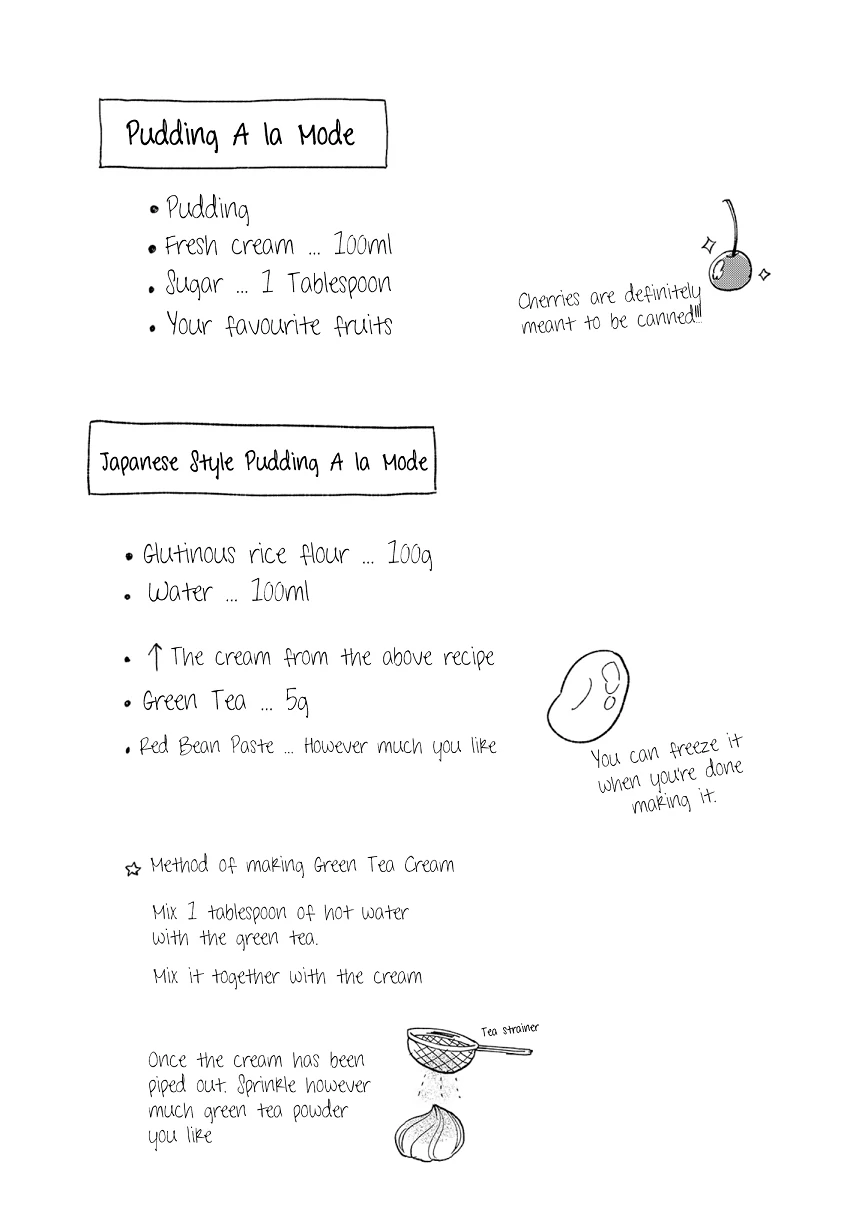 Pudding A la Mode
• Pudding
• Fresh cream ... 100ml
• Sugar ... 1 Tablespoon
• Your favourite fruits
Cherries are definitely
meant to be canned!!!
Japanese Style Pudding A la Mode
• Glutinous rice flour ... 100g
• Water ... 100ml
• ↑ The cream from the above recipe
• Green Tea ... 5g
• Red Bean Paste ... However much you like
You can freeze it
when you're done
making it.
☆ Method of making Green Tea Cream
Mix 1 tablespoon of hot water
with the green tea.
Mix it together with the cream
Tea strainer
Once the cream has been
piped out. Sprinkle however
much green tea powder
you like